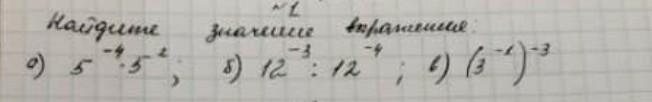 №1
Найдите значение выражения:
а) 5⁻⁴·5²; б) 12⁻³ : 12⁻⁴; в) (3⁻¹)⁻³